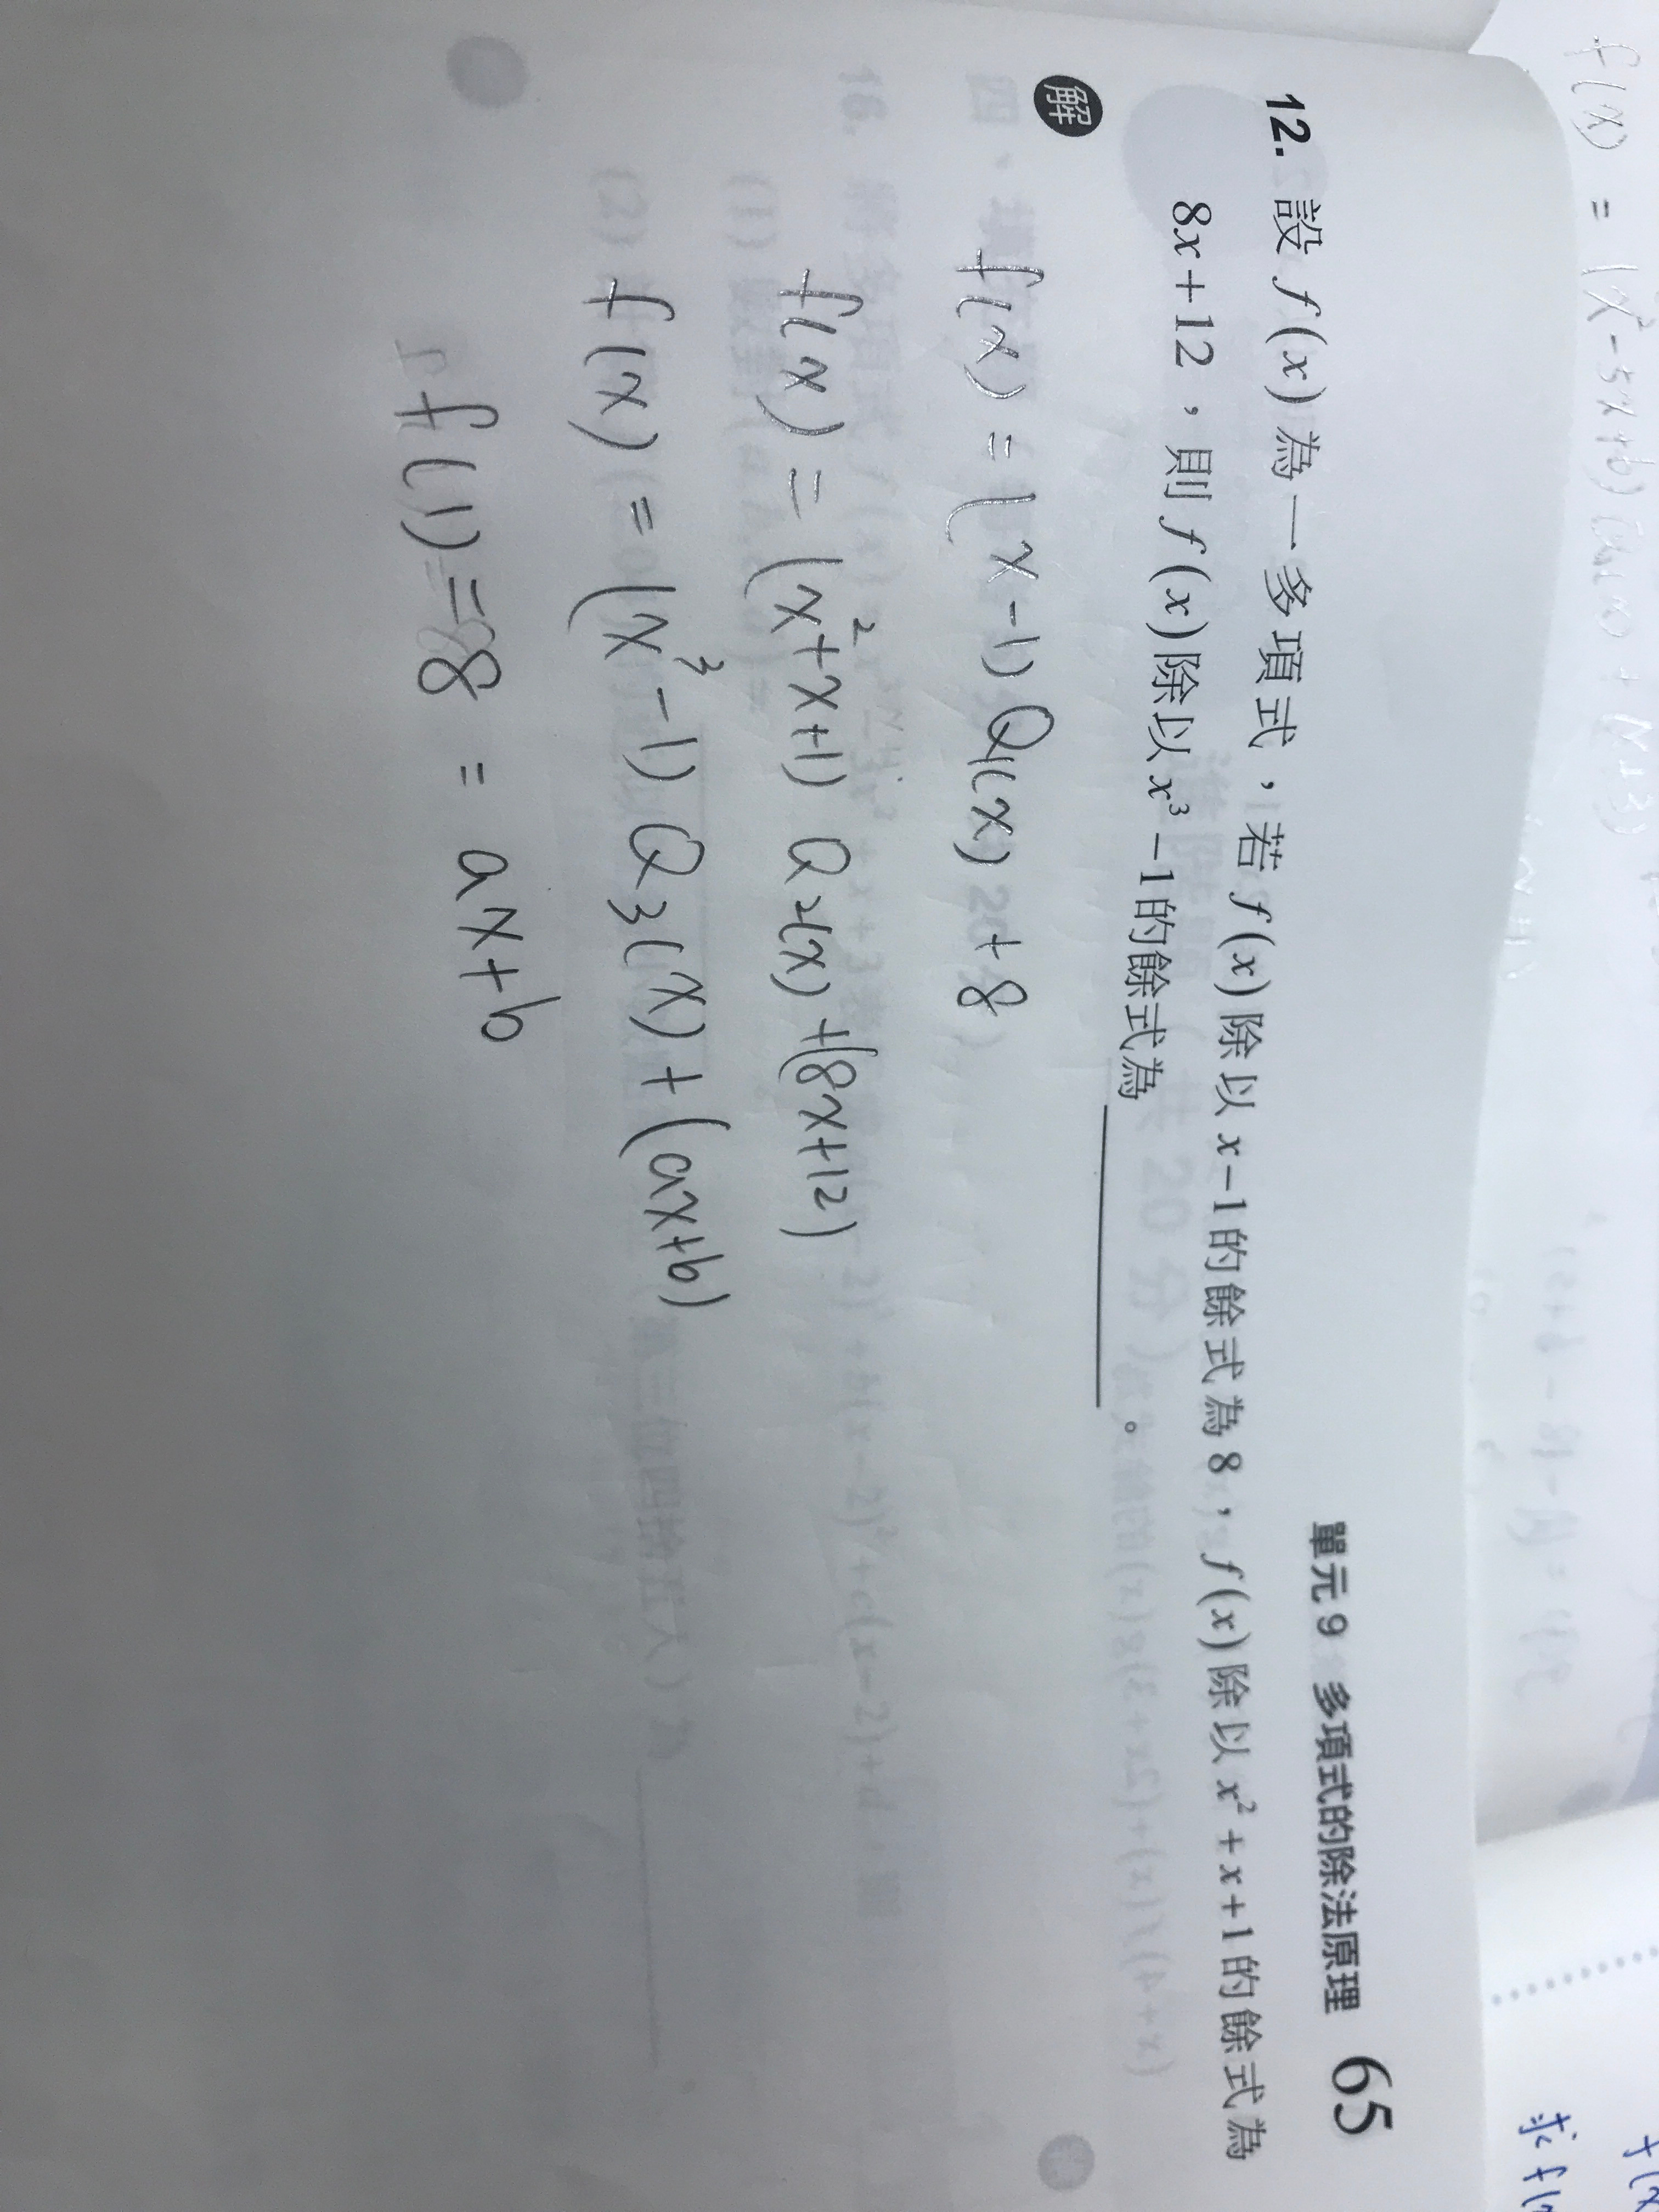 單元 9 多項式的除法原理 65
12. 設 f(x) 為一多項式，若 f(x) 除以 x−1 的餘式為 8，f(x) 除以 x²+x+1 的餘式為
8x+12，則 f(x) 除以 x³−1 的餘式為________。
解
f(x) = (x-1) Q1(x) + 8
f(x) = (x²+x+1) Q2(x) + (8x+12)
f(x) = (x³-1) Q3(x) + (ax+b)
f(1) = 8 = ax+b
f(x) = (x²-5x+6)
求 f(